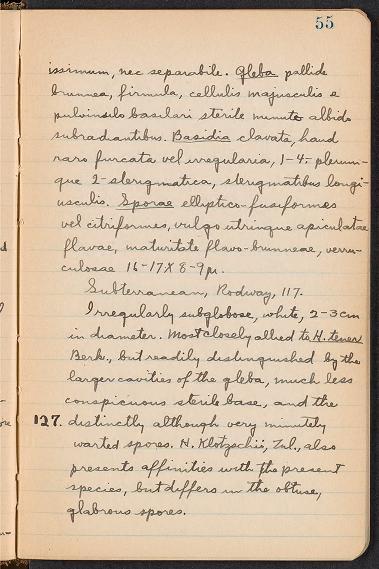 55
issimum, nec separabile. Gleba pallide
brunnea, firmula, cellulis majusculis e
pulvinulo basilari sterile minute albido
subradiantibus. Basidia clavata, haud
raro furcata vel irregularia, 1-4- plerum-
que 2-sterigmatica, sterigmatibus longi-
usculis. Sporae elliptico-fusiformes
vel citriformes, vulgo utrinque apiculatae
flavae, maturitate flavo-brunneae, verru-
culosae 16-17X8-9µ.
Subterranean, Rodway, 117.
Irregularly subglobose, white, 2-3cm
in diameter. Most closely allied to H. tener
Berk., but readily distinguished by the
larger cavities of the gleba, much less
conspicuous sterile base, and the
127. distinctly although very minutely
warted spores. H. Klotzschii, Tul., also
presents affinities with the present
species, but differs in the obtuse,
glabrous spores.